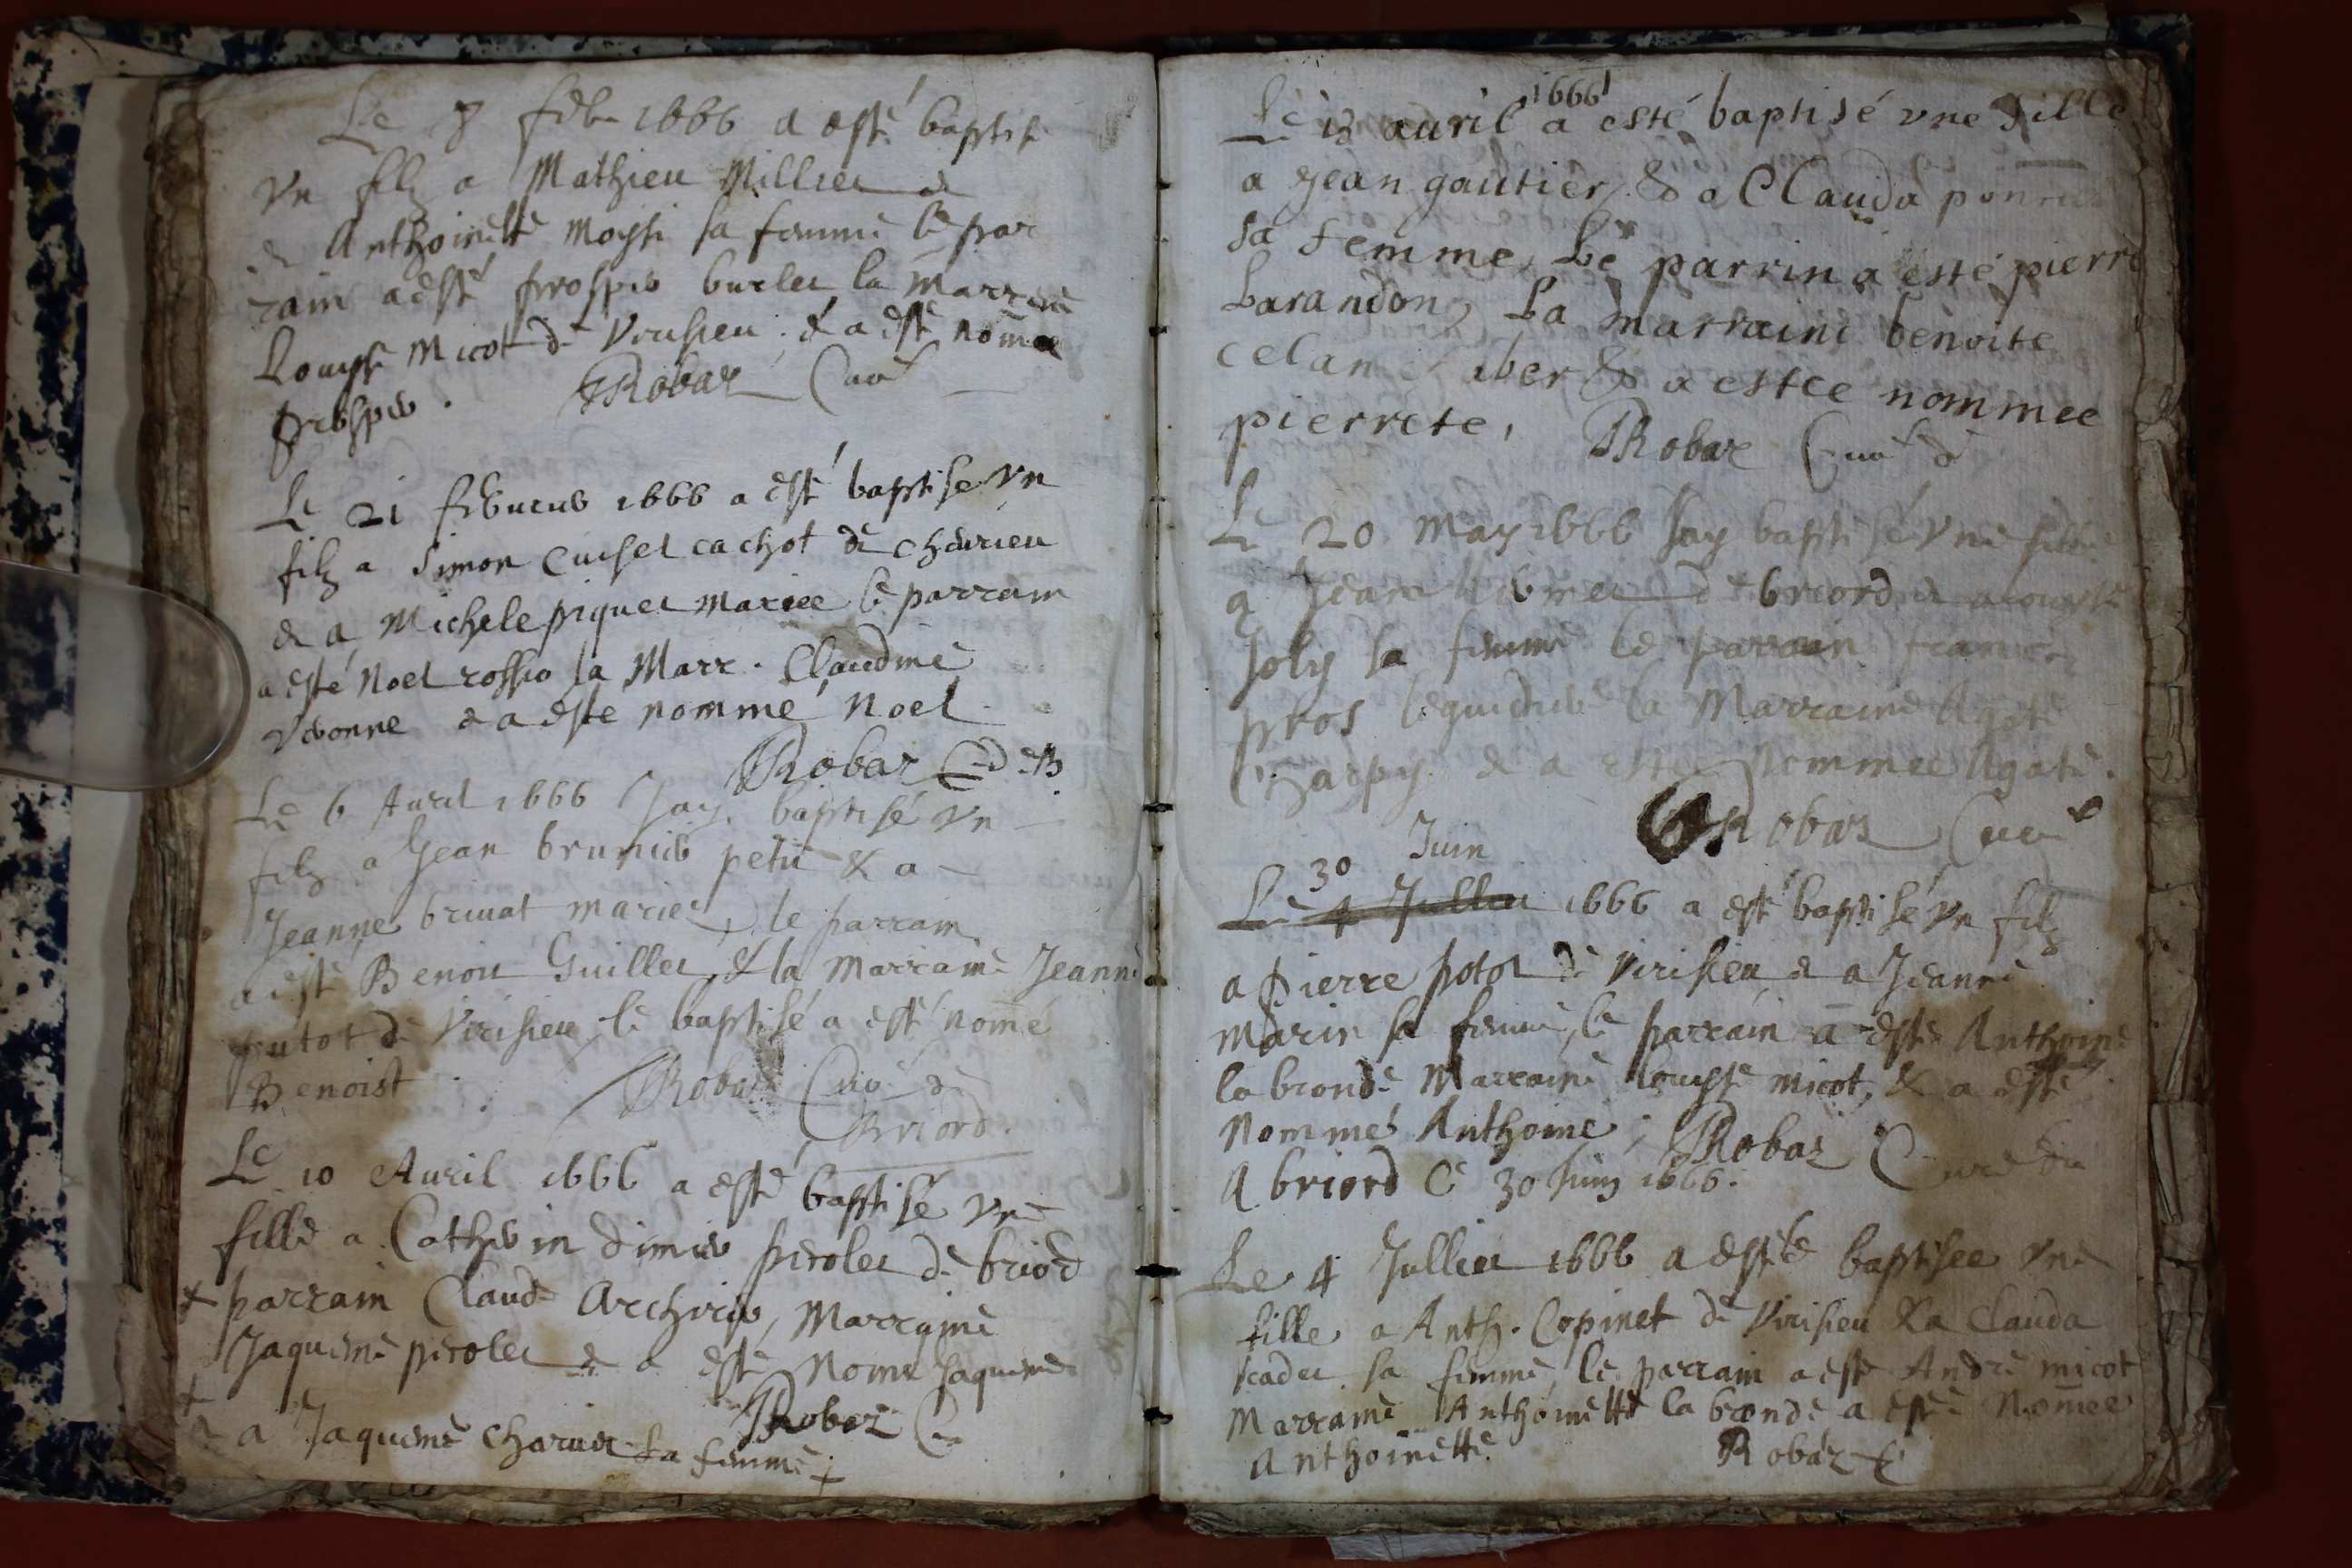 Le 8 feb. 1666 a esté baptisé
Vn filz a Mathieu Millier &
& Anthoinette Moysi sa femme le par
rain a esté prosper burlet la Marraine
Louyse Micot de Virisieu & a esté nōmé
prosper. Robar Curé
Le 21 feburier 1666 a esté baptisé Vn
filz a Simon Cuchet cachot de cheurieu
& a Michele piquet Mariee le parrain
a esté Noel rossio la Marr. Claudine
& a esté nommé Noel
Robar C. de B
Le 6 Auril 1666 Jay baptisé Vn
filz a Jean brunier petit & a
Jeanne briuat mariez, le parrain
a esté Benoit Guillet, & la marraine Jeanne
putot de Virisieu, le baptisé a esté nōmé
Benoist Robar Curé de
Briord.
Le 10 Auril 1666 a esté baptisé Vne
fille a Catherin dimier peroler de briord
+ parrain Claude Archirier, Marraine
Jaqueme peroler & a esté Nomé Jaqueme
Robar C
+ & a Jaqueme charuet sa femme +
Le 13 auril 1666 a esté baptisé vne fille
a Jean gautier, & a Clauda
sa femme, Le parrin a esté pierre
barandon, La marraine benoite
celan & a estee nommee
pierrete, Robar Curé de
Le 20 May 1666 Jay baptisé Vne fille
a Jean de briord & a Louyse
Joly sa femme le parrain
pros la Marraine Agate
Charpy & a esté Nommee Agate.
Robar Curé
30 Juin
Le 4 Jullet 1666 a esté baptisé Vn filz
a pierre potot de Virisieu & a Jeanne
Marin sa femme, le parrain a esté Anthoine
la bronde Marraine Louyse micot, & a esté
Nommé Anthoine; Robar Curé de
A briord Ce 30 Juin 1666.
Le 4 Jullet 1666 a esté baptisee Vne
fille a Anth. Copinet de Virisieu & a Clauda
sa femme, le parrain a esté André micot
Marraine Anthoinette la bronde a esté Nōmee
Anthoinette. Robar C